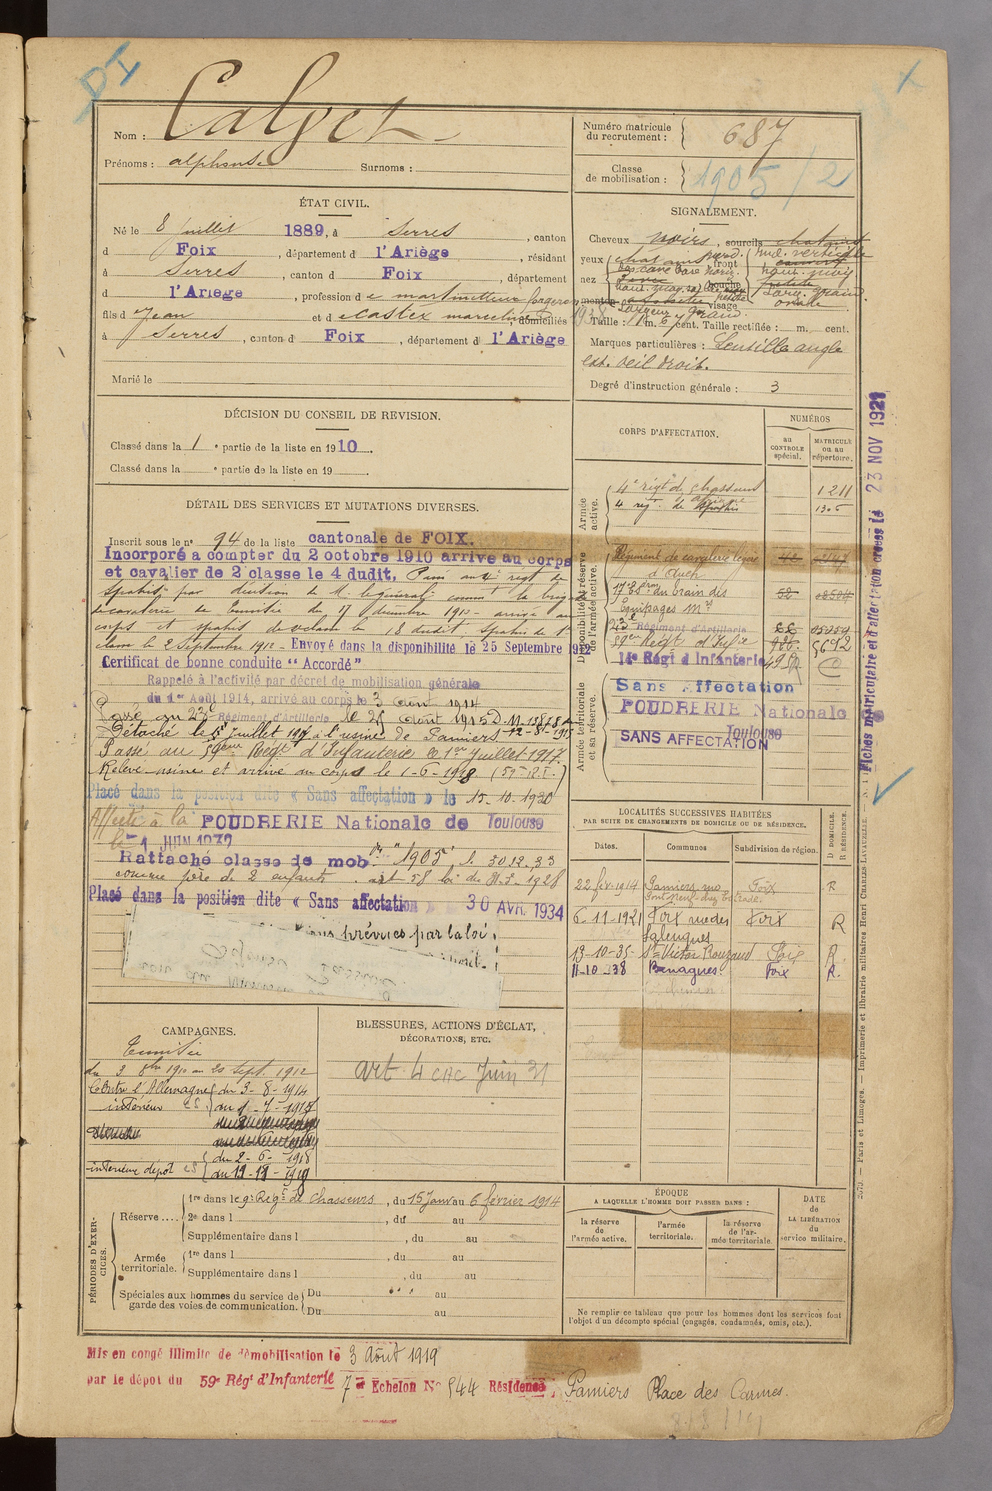 DI
Nom : Calvet
Prénoms : alphonse Surnoms :
Numéro matricule du recrutement : 687
Classe de mobilisation : 1905 / 2
ÉTAT CIVIL.
Né le 8 juillet 1889, à Serres, canton
d Foix, département d l'Ariège, résidant
à Serres, canton d Foix, département
d l'Ariège, profession de martineur forgeron
fils d Jean et de Castex marceline, domiciliés
à Serres, canton d Foix, département d l'Ariège
Marié le
SIGNALEMENT.
Cheveux noirs, sourcils chatains
yeux front
nez bouche
menton visage
Taille : 1 m. 6 cent. Taille rectifiée : m. cent.
Marques particulières : Lentille angle
ext. oeil droit.
Degré d'instruction générale : 3
DÉCISION DU CONSEIL DE REVISION.
Classé dans la 1e partie de la liste en 1910.
Classé dans la e partie de la liste en 19
DÉTAIL DES SERVICES ET MUTATIONS DIVERSES.
Inscrit sous le n° 94 de la liste cantonale de FOIX.
Incorporé a compter du 2 octobre 1910 arrive au corps
et cavalier de 2 classe le 4 dudit, Passé au 4e régt de
spahis par décision de M. le général commt la brigade
de cavalerie de Tunisie du 17 décembre 1910 - arrivé au
corps et spahis de 2e classe le 18 dudit. Spahis de 1e
classe le 2 Septembre 1912 - Envoyé dans la disponibilité le 25 Septembre 1912
Certificat de bonne conduite "Accordé"
Rappelé à l'activité par décret de mobilisation générale
du 1er Août 1914, arrivé au corps le 3 Août 1914
Passé au 23e Régiment d'Artillerie le 25 Août 1915
Détaché le juillet 1917 à l'usine de Pamiers
Passé au 59ème Régt d'Infanterie le 1er Juillet 1917
Relevé usine et arrivé au corps le 1-6-1918 (59e R.I.)
Placé dans la position dite « Sans affectation » le 15-10-1930
Affecté à la POUDRERIE Nationale de Toulouse
le 1 JUIN 1932
Rattaché classe de mob. de "1905", le 30.12.33
comme père de 2 enfants. art 58 loi du 1928
Placé dans la position dite « Sans affectation » 30 AVR. 1934
prévues par la loi.
CORPS D'AFFECTATION.
NUMÉROS
au CONTROLE spécial.
MATRICULE ou au répertoire.
Armée active.
4e régt de chasseurs 1211
4 rég. de spahis 1306
Disponibilité et réserve de l'armée active.
Régiment de cavalerie légère
d'Auch
17e Esdron du train des
Équipages Mres
23e Régiment d'Artillerie
59ème Régt d'Infie
14e Régt d'Infanterie
Armée territoriale et sa réserve.
Sans Affectation
POUDRERIE Nationale
Toulouse
SANS AFFECTATION
Fiches matriculaire et d'affectation créées le 23 NOV 1921
LOCALITÉS SUCCESSIVES HABITÉES
PAR SUITE DE CHANGEMENTS DE DOMICILE OU DE RÉSIDENCE.
Dates. Communes Subdivision de région. D DOMICILE. R RÉSIDENCE.
22 fév. 1914 Pamiers Foix R
6-11-1921 Foix rue des Foix R
Salenques
13-10-35 St Victor Rouzaud Foix R.
11-10-38 Benagues Foix R.
CAMPAGNES.
Tunisie
du 3 8bre 1910 au 20 sept. 1912
Contre l'Allemagne du 3-8-1914
intérieur CS au 1-7-1917
du 2-6-1918
intérieur dépôt CS
BLESSURES, ACTIONS D'ÉCLAT,
DÉCORATIONS, ETC.
art 4 CAC Juin 31
PÉRIODES D'EXERCICES.
Réserve .... 1re dans le 9e Régt de Chasseurs, du 15 Janv au 6 février 1914
2e dans l , du au
Supplémentaire dans l , du au
Armée territoriale. 1re dans l , du au
Supplémentaire dans l , du au
Spéciales aux hommes du service de garde des voies de communication. Du au
Du au
ÉPOQUE
A LAQUELLE L'HOMME DOIT PASSER DANS :
la réserve de l'armée active.
l'armée territoriale.
la réserve de l'armée territoriale.
DATE de LA LIBÉRATION du service militaire.
Ne remplir ce tableau que pour les hommes dont les services font l'objet d'un décompte spécial (engagés, condamnés, omis, etc.).
Paris et Limoges. — Imprimerie et librairie militaires Henri CHARLES-LAVAUZELLE.
Mis en congé illimité de démobilisation le 3 Août 1919
par le dépot du 59e Régt d'Infanterie 7e Echelon N° 544 Résidence, Pamiers Place des Carmes.